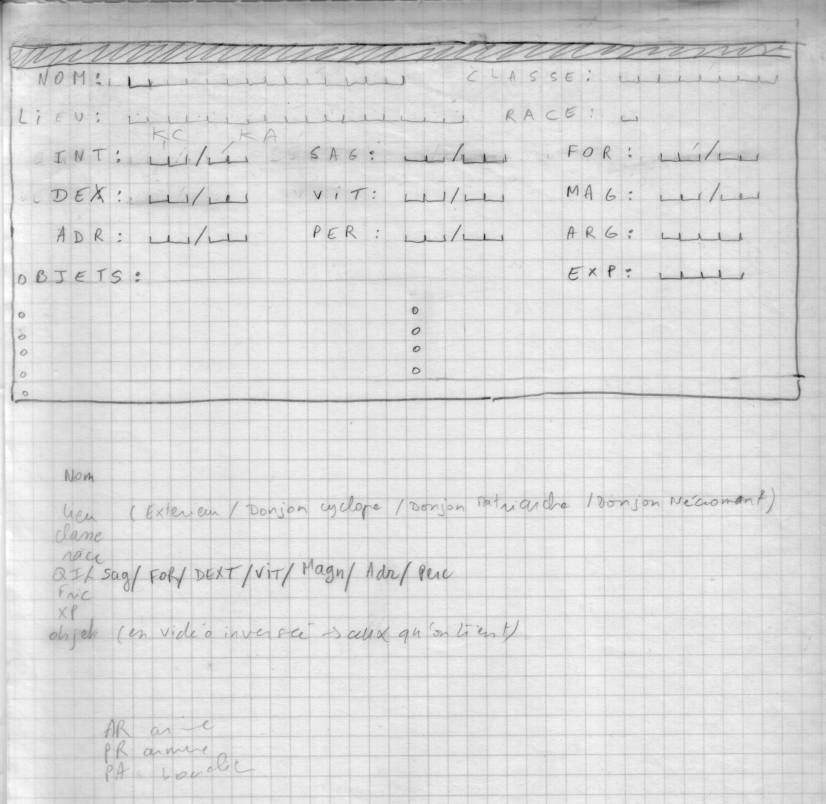 NOM: CLASSE:
LiEU: RACE:
KC KA
INT: / SAG: / FOR: /
DEX: / ViT: / MAG: /
ADR: / PER: / ARG:
OBJETS: EXP:
Nom
lieu (Exterieur / Donjon cyclope / Donjon Patriarche / Donjon Nécromant)
classe
race
QI/ Sag/ FOR/ DEXT /ViT/ Magn/ Adr/ Perc
Fric
XP
objets (en vidéo inversée → ceux qu'on tient)
AR arme
PR armure
PA bouclier